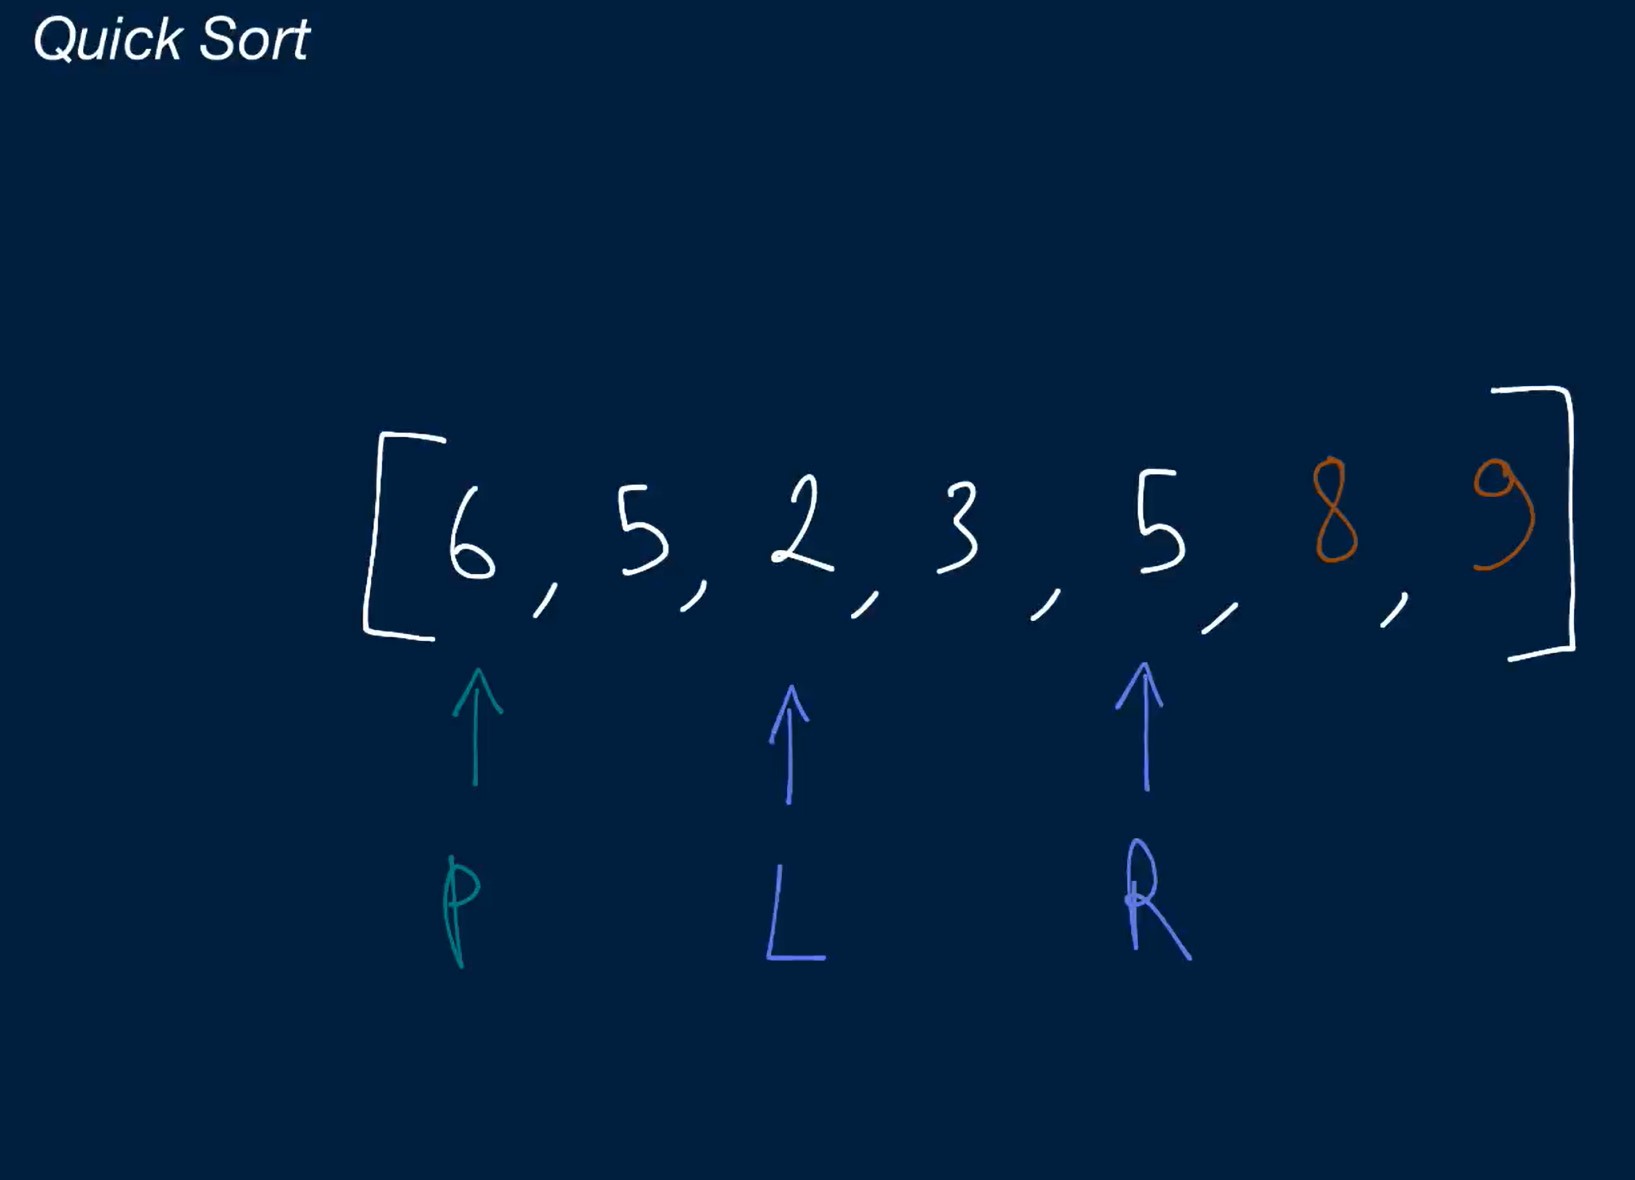 Quick Sort
[6, 5, 2, 3, 5, 8, 9]
P L R